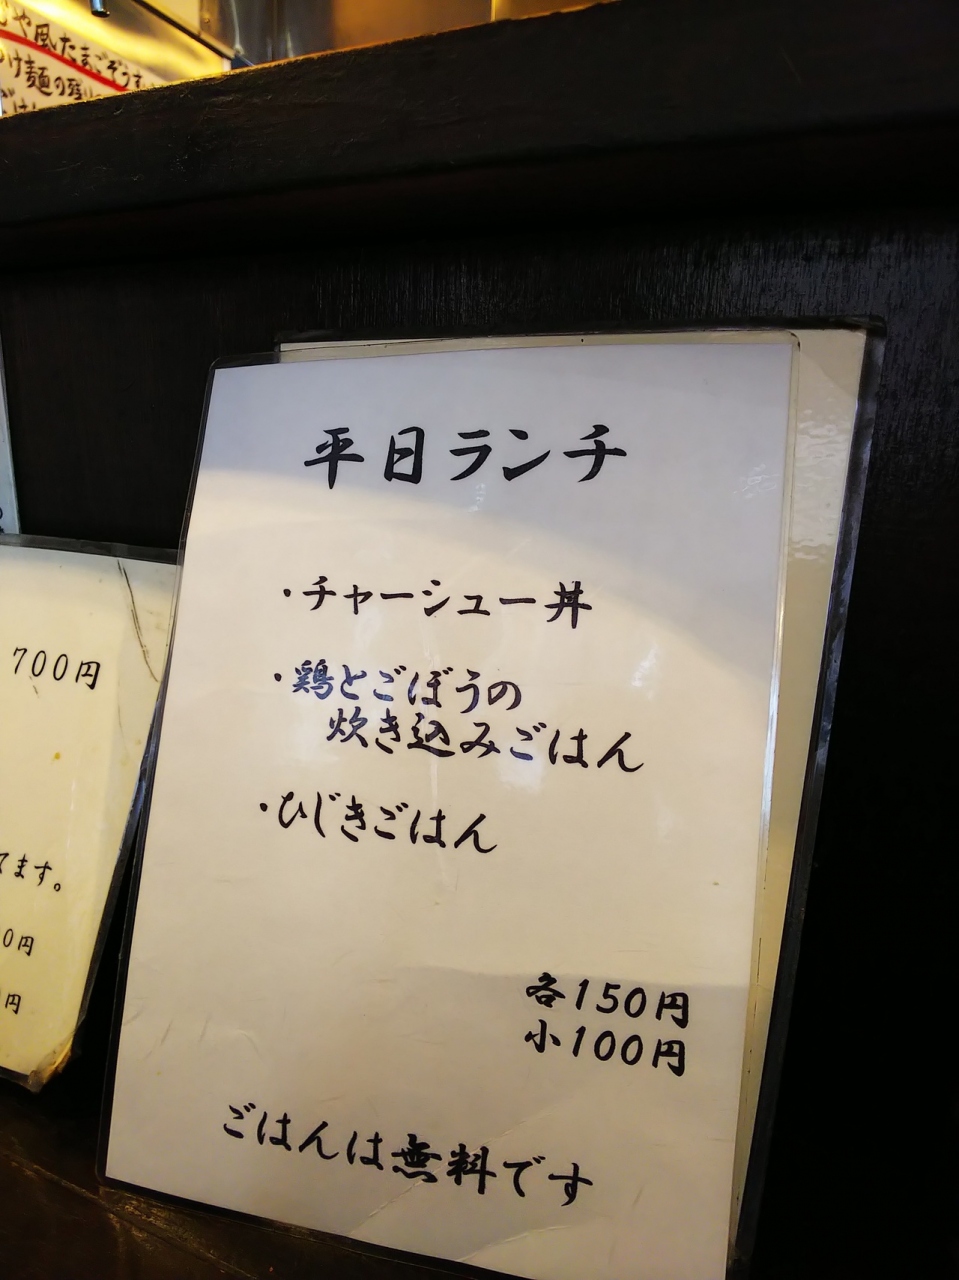 や風たまごぞうす
け麺の残り
平日ランチ
・チャーシュー丼
・鶏とごぼうの
炊き込みごはん
・ひじきごはん
各150円
小100円
ごはんは無料です
700円
てます。
0円
円